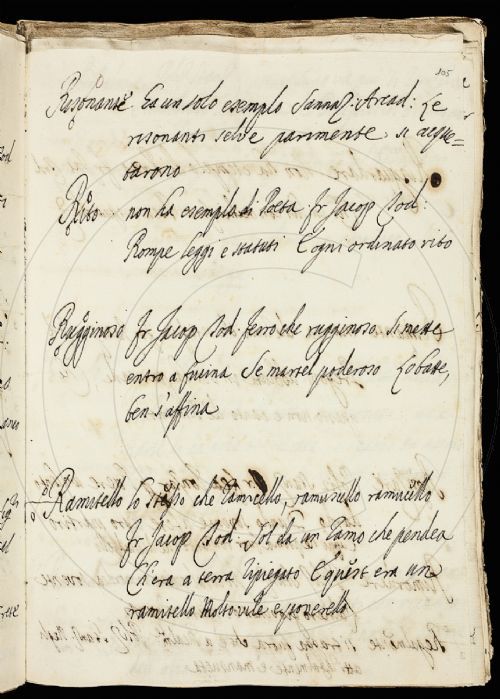 105
Risonante Ha un solo esempio Sannaz. Arcad: Le
risonanti selve parimente si acque=
tarono
Rito non ha esempio di Poeta. Fr Jacop Tod:
Rompe leggi e statuti E ogni ordinato rito
Rugginoso Fr Jacop Tod. Ferro che rugginoso si mette
entro a fucina Se martel poderoso Lo batte,
ben s'affina
Ramitello Lo stesso che ramicello, ramuscello ramucello
Fr Jacop Tod. Sol da un ramo che pendea
Ch'era a terra ripiegato E quest era un
ramitello Molto vile e poverello